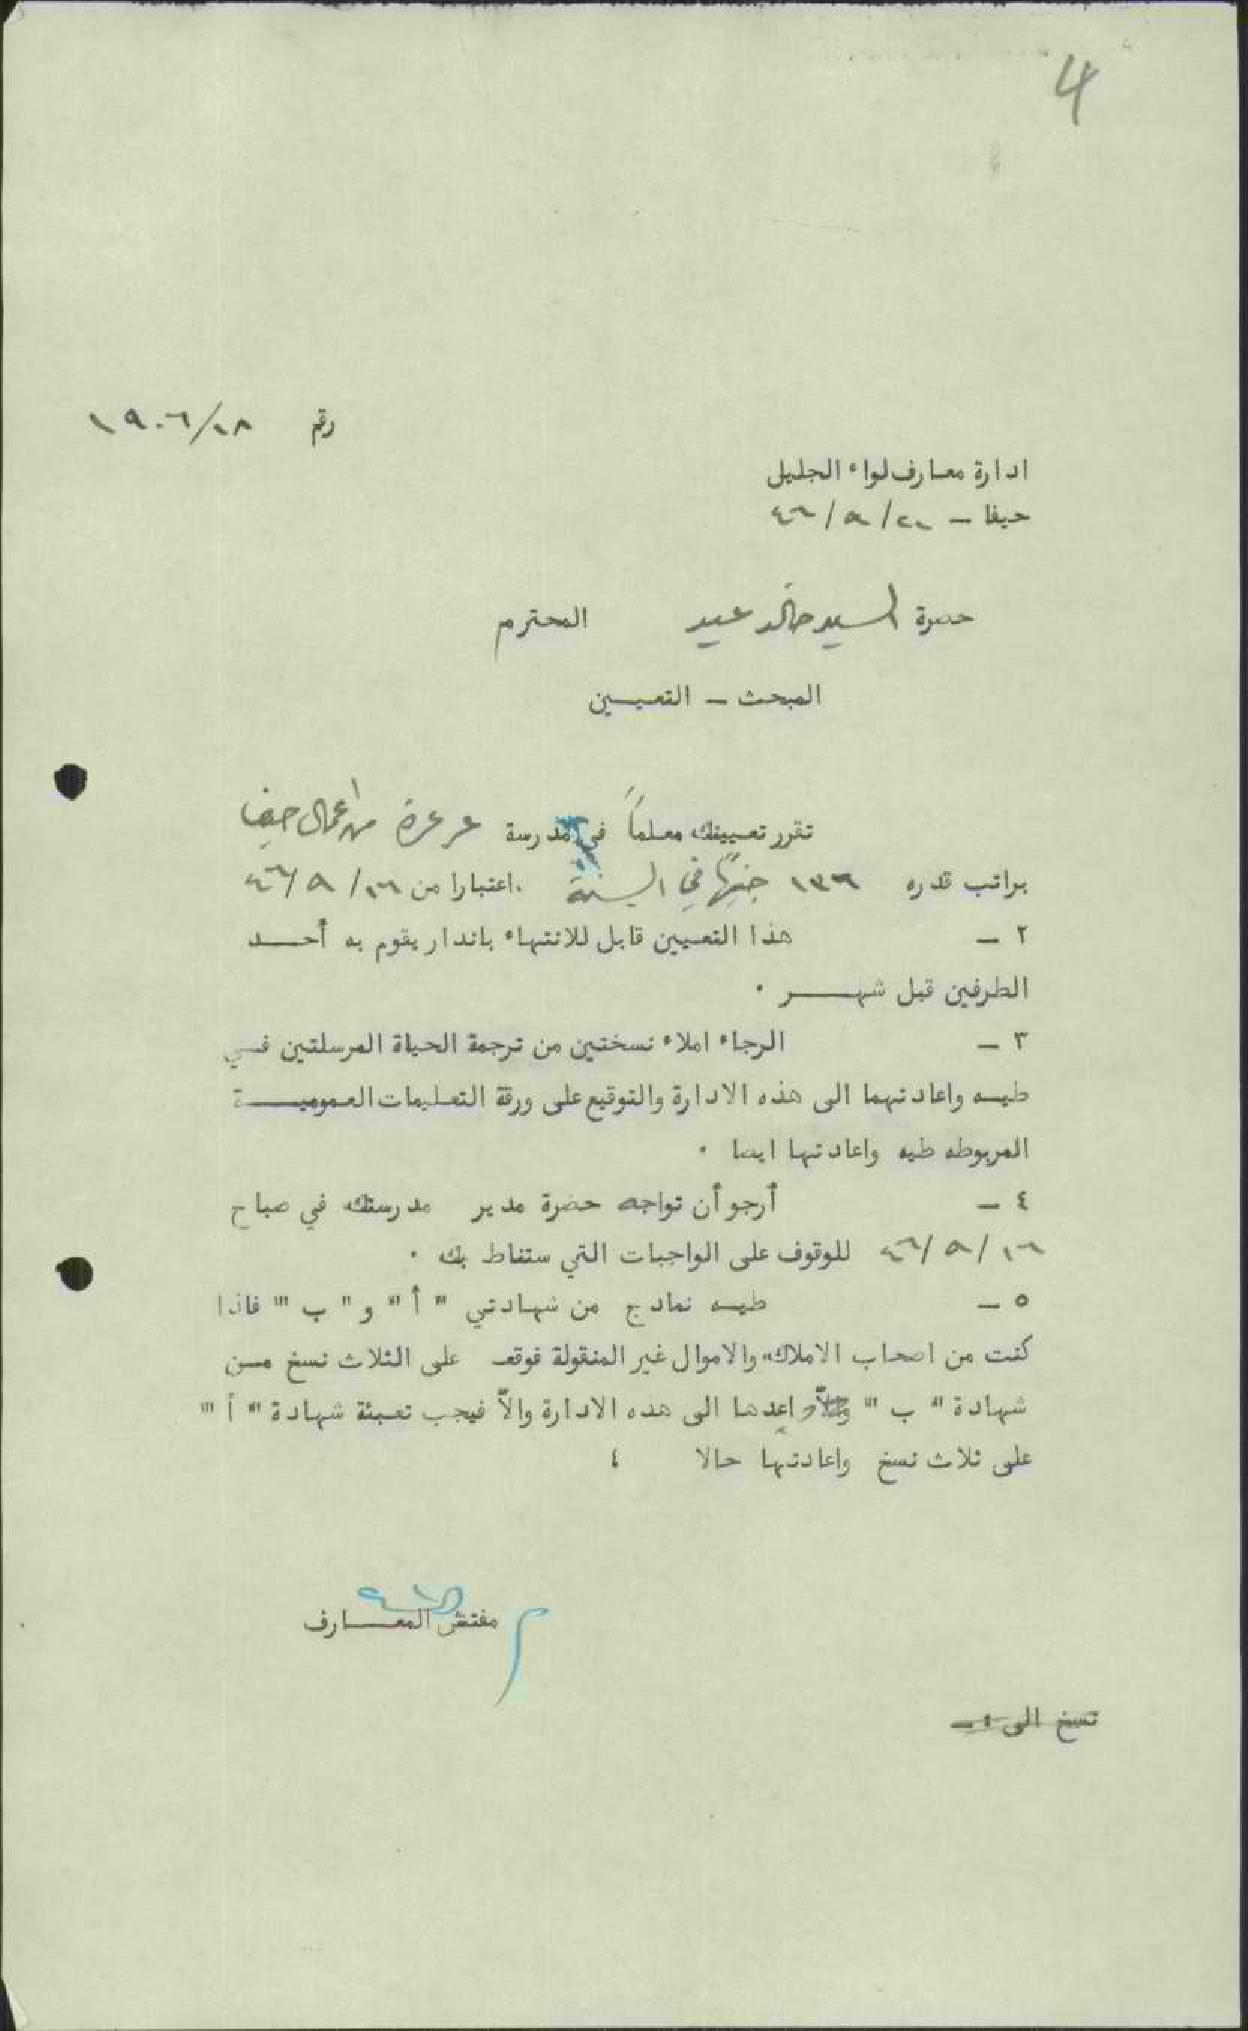 4
رقم ١٩٠٦/١٨
ادارة معارف لواء الجليل
حيفا – ٤٦/٩/٢١
حضرة السيد خالد عبيد المحترم
المبحث – التعيــين
تقرر تعييينك معلماً في مدرسة عرعرة من اعمال حيفا
براتب قدره ١٣٦ جنيهًا في السنة ،اعتبارا من ٤٦/٩/١٦
٢ – هذا التعيين قابل للانتهاء باندار يقوم به أحــد
الطرفين قبل شهــــر ٠
٣ – الرجاء املاء نسختين من ترجمة الحياة المرسلتين فــي
طيــه واعادتهما الى هذه الادارة والتوقيع على ورقة التعليمات العموميــــة
المربوطه طيه واعادتها ايضا ٠
٤ – أرجو أن تواجه حضرة مدير مدرستك في صباح
٤٦/٩/١٦ للوقوف على الواجبات التي ستناط بك ٠
٥ – طيــه نمادج من شهادتي " أ " و " ب " فاذا
كنت من اصحاب الاملاك والاموال غير المنقولة فوقع على الثلاث نسخ مــن
شهادة " ب " اعدها الى هده الادارة والاّ فيجب تعبئة شهادة " أ "
على ثلاث نسخ واعادتها حالا ؛
مفتش المعــــارف
نسخ الى :–